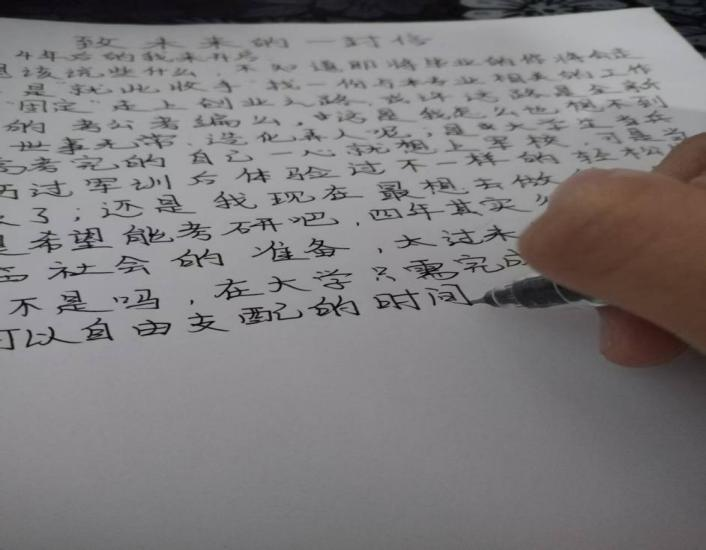 致未来的一封信
4年后的我来开启
该说些什么,不知道即将毕业的你将会走
是就此收手找一份与本专业相关的工作
"固定"走上创业之路,
的考公考编么,也想不到
世事无常,造化弄人呢,是大学生当兵
高考完的自己一心就想上军校,可是当
历过军训后体验过不一样的轻松
了;还是我现在最想去做
是希望能考研吧,四年其实
社会的准备,大过来
不是吗,在大学只需完成
可以自由支配的时间